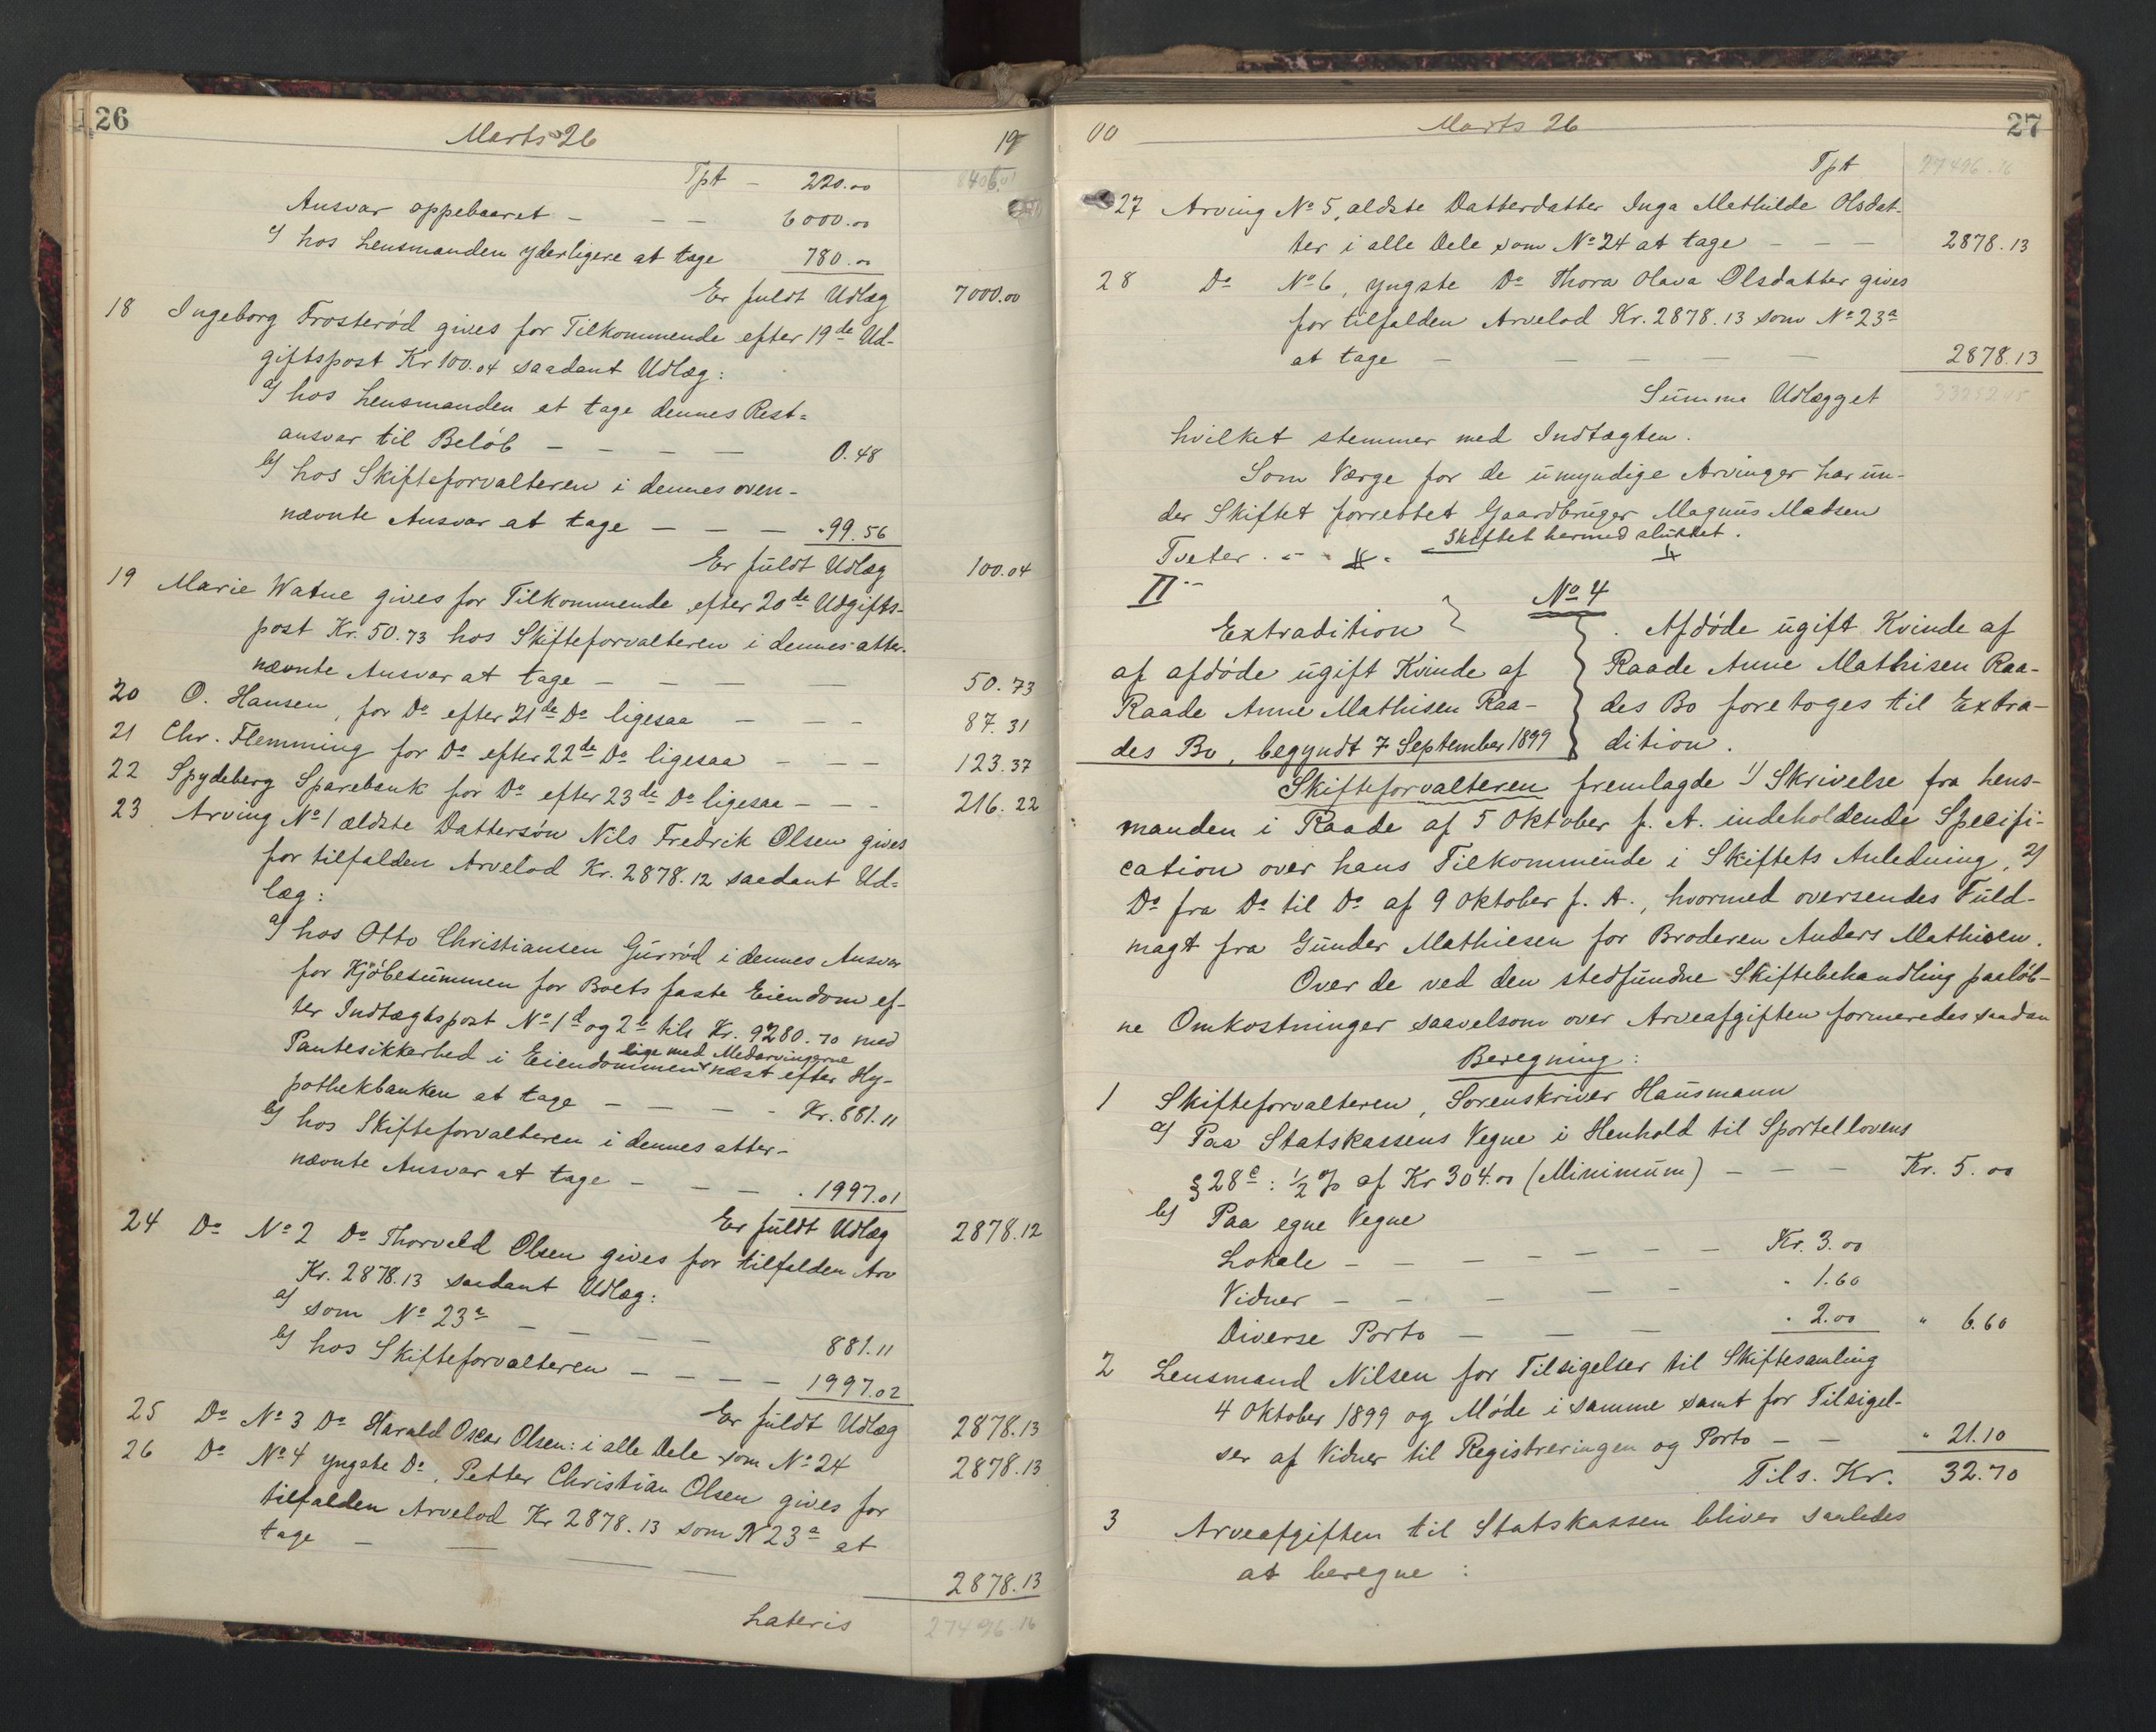 26
Marts 26
19
Tpt – 220.00
Ansvar oppebaaret – – – 6000.00
c) hos Lensmanden yderligere at tage 780.00
Er fuldt Udlæg 7000.00
18 Ingeborg Frosterød gives for Tilkommende efter 19de Ud-
giftspost Kr 100.04 saadant Udlæg:
a) hos Lensmanden at tage dennes Rest=
ansvar til Beløb – – – – 0.48
b) hos Skifteforvalteren i dennes oven-
nævnte Ansvar at tage – – – " 99.56
Er fuldt Udlæg 100.04
19 Marie Watne gives for Tilkommende efter 20de Udgifts-
post Kr. 50.73 hos Skifteforvalteren i dennes atter-
nævnte Ansvar at tage – – – – 50.73
20 O. Hansen, for Do efter 21de Do ligesaa – – – 87.31
21 Chr. Flemming for Do efter 22de Do ligesaa – – – 123.37
22 Spydeberg Sparebank for Do efter 23de Do ligesaa – – – 216.22
23 Arving No 1 ældste Dattersøn Nils Fredrik Olsen gives
for tilfalden Arvelod Kr. 2878.12 saadant Ud=
læg:
a) hos Otto Christiansen Gurrød i dennes Ansvar
for Kjøbesummen for Boets faste Eiendom ef-
ter Indtægtspost No 1d og 2b tils Kr. 9280.70 med
lige med Medarvingerne
Pantesikkerhed i Eiendommen næst efter Hy-
pothekbanken at tage – – – – Kr. 881.11
b) hos Skifteforvalteren i dennes atter-
nævnte Ansvar at tage – – – " 1997.01
Er fuldt Udlæg 2878.12
24 Do No 2 Do Thorvald Olsen gives for tilfalden Arv
Kr. 2878.13 saadant Udlæg:
a) som No 23a – – – – 881.11
b) hos Skifteforvalteren – – – – 1997.02
Er fuldt Udlæg 2878.13
25 Do No 3 Do Harald Oscar Olsen: i alle Dele som No 24 2878.13
26 Do No 4 yngste Do, Petter Christian Olsen gives for
tilfalden Arvelod Kr 2878.13 som N 23a at
tage – – – – 2878.13
Lateris 27496.16
00
Marts 26
27
Tpt 27496.16
27 Arving No 5, ældste Datterdatter Inga Mathilde Olsdat-
ter i alle Dele som No 24 at tage – – – 2878.13
28 Do No 6, yngste Do Thora Olava Olsdatter gives
for tilfalden Arvelod Kr. 2878.13 som No 23a
at tage – – – – – 2878.13
Summa Udlægget
hvilket stemmer med Indtægten.
Som Værge for de umyndige Arvinger har un-
der Skiftet forrettet Gaardbruger Magnus Madsen
Skiftet hermed sluttet.
Tveter. – –
II –
No 4
Extradition
af afdøde ugift Kvinde af
Raade Anne Mathisen Raa-
des Bo, begyndt 7 September 1899
Afdøde ugift Kvinde af
Raade Anne Mathisen Raa-
des Bo foretoges til Extra-
dition.
Skifteforvalteren fremlagde 1) Skrivelse fra Lens-
manden i Raade af 5 Oktober f. A. indeholdende Specifi-
cation over hans Tilkommende i Skiftets Anledning, 2)
Do fra Do til Do af 9 Oktober f. A., hvormed oversendes Fuld-
magt fra Gunder Mathiesen for Broderen Anders Mathisen.
Over de ved den stedfundne Skiftebehandling paaløb-
ne Omkostninger saavelsom over Arveafgiften formeredes saadan
Beregning:
1 Skifteforvalteren, Sorenskriver Hausmann
a) Paa Statskassens Vegne i Henhold til Sportellovens
§ 28c: ½ % af Kr 304.00 (Minimum) – – – Kr. 5.00
b) Paa egne Vegne
Lokale – – – – – – – Kr. 3.00
Vidner – – – – – " 1.60
Diverse Porto – – – " 2.00 " 6.60
2 Lensmand Nilsen for Tilsigelser til Skiftesamling
4 Oktober 1899 og Møde i samme samt for Tilsigel-
ser af Vidner til Registreringen og Porto – – " 21.10
Tils. Kr. 32.70
3 Arveafgiften til Statskassen bliver saaledes
at beregne :